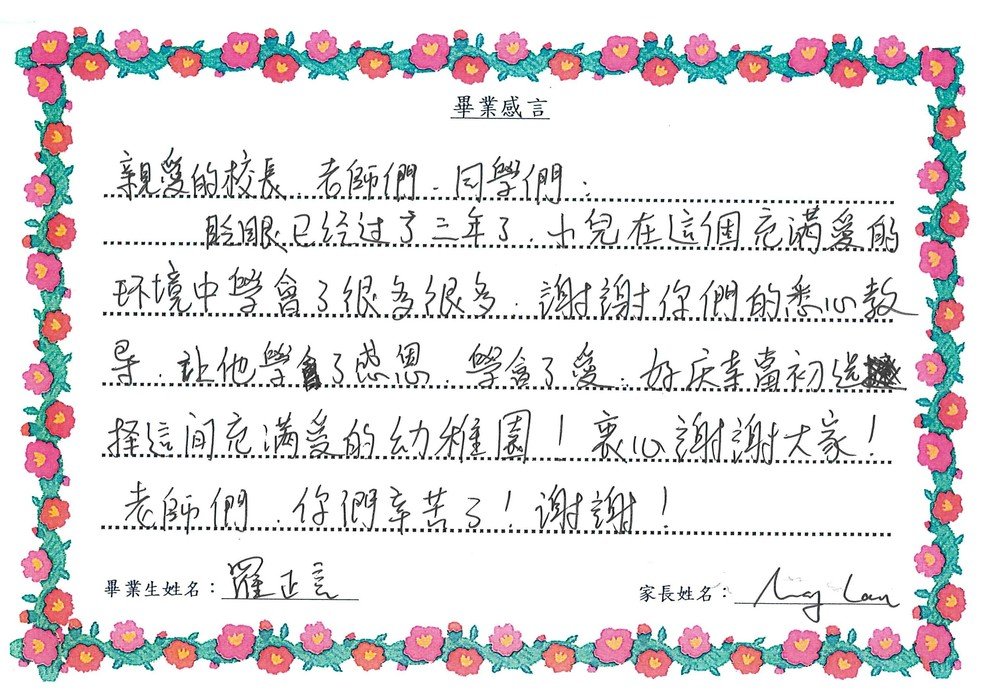 畢業感言
親愛的校長、老師們、同學們：
眨眼已经过了三年了，小兒在這個充滿愛的
环境中學會了很多很多，謝謝你們的悉心教
导，让他學會了感恩，學會了愛，好庆幸當初选
择這间充滿愛的幼稚園！衷心謝謝大家！
老師們，你們辛苦了！謝謝！
畢業生姓名：羅正言
家長姓名：